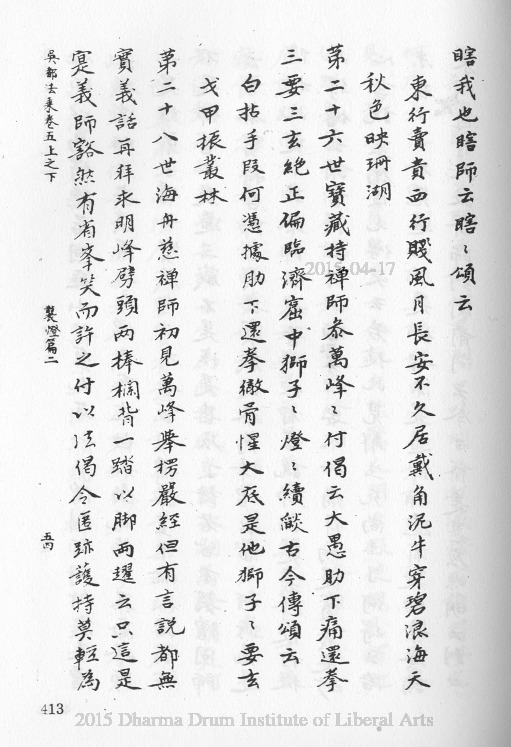 瞎我也瞎師云瞎〻頌云
東行賣貴西行賤風月長安不久居戴角泥牛穿碧浪海天
秋色映珊湖
第二十六世寶藏持禪師叅萬峰〻付偈云大愚肋下痛還拳
三要三玄絕正偏臨濟窟中獅子〻燈〻續燄古今傳頌云
白拈手段何憑據肋下還拳徹骨惺大底是他獅子〻要玄
戈甲振叢林
第二十八世海舟慈禪師初見萬峰舉楞嚴經但有言說都無
實義話再拜求明峰劈頭兩棒攔背一踏以脚兩躍云只這是
寔義師豁然有省峯笑而許之付以法偈令匿跡護持莫輕為
吳都法乘卷五上之下
襲燈篇二
五四
413
2015-04-17
2015 Dharma Drum Institute of Liberal Arts